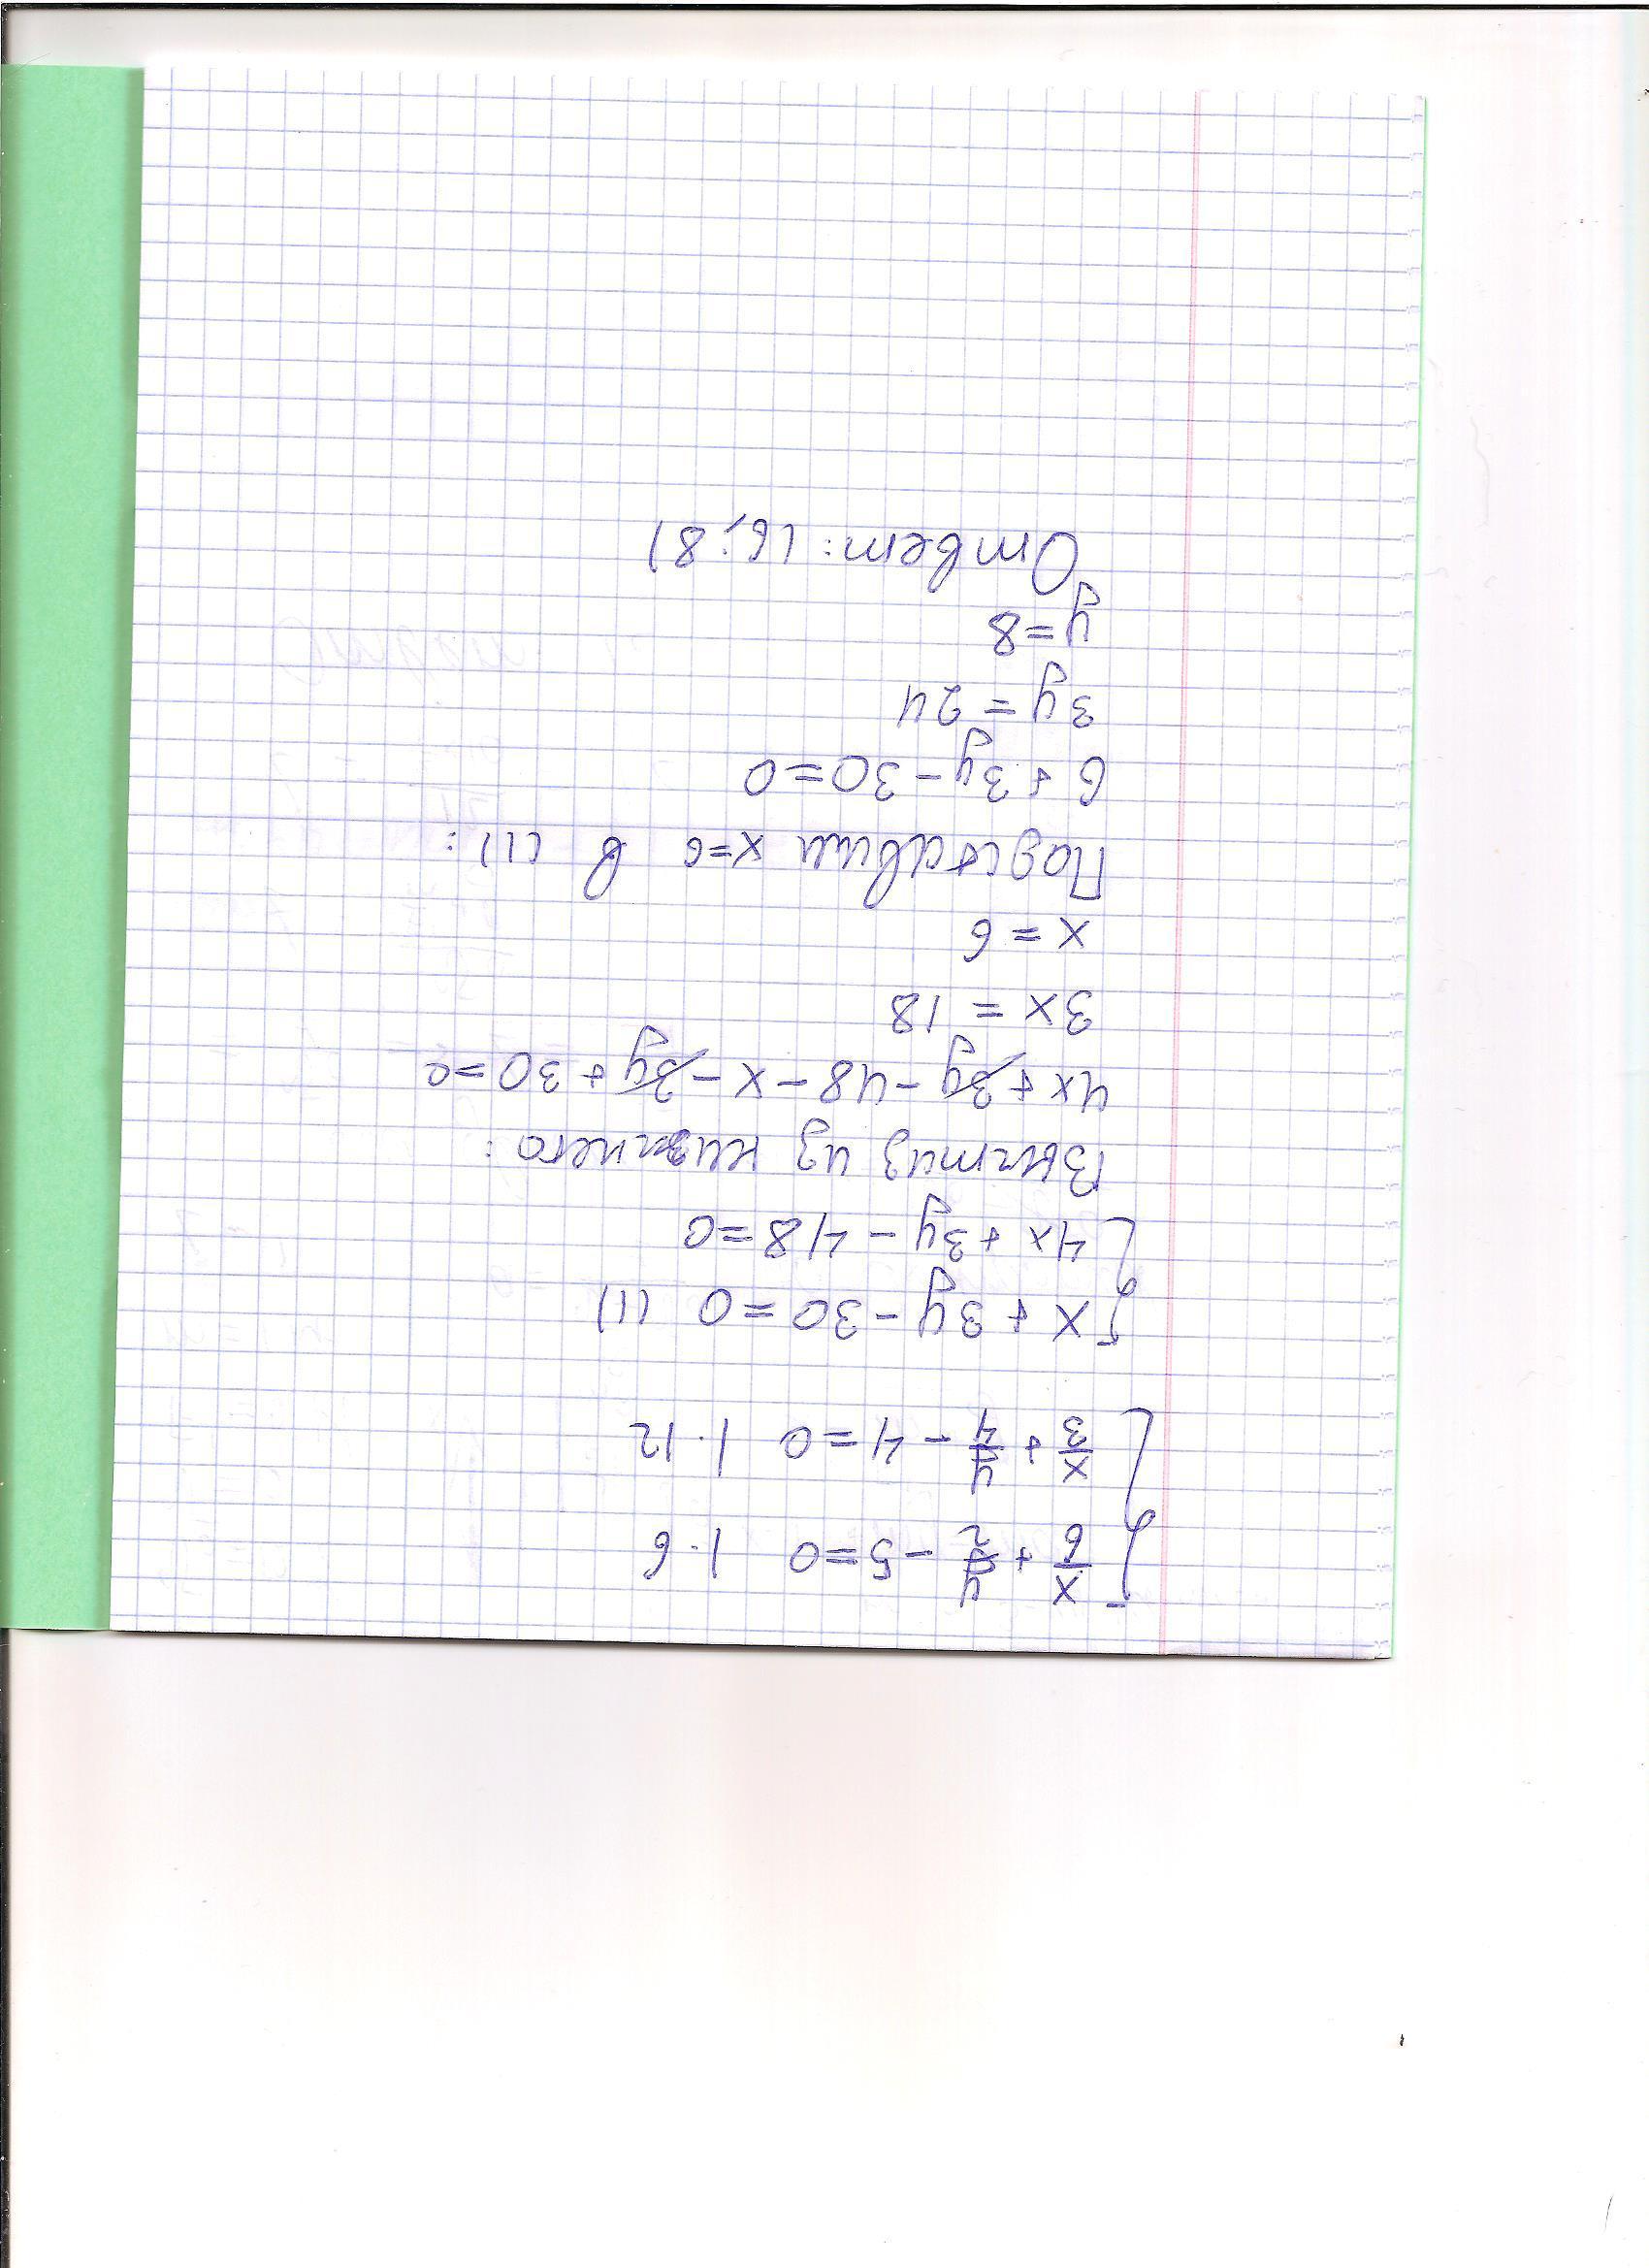 { x/6 + y/2 - 5 = 0 | · 6
{ x/3 + y/4 - 4 = 0 | · 12
{ x + 3y - 30 = 0 (1)
{ 4x + 3y - 48 = 0
из нижнего:
4x + 3y - 48 - x - 3y + 30 = 0
3x = 18
x = 6
Подставим x=6 в (1):
6 + 3y - 30 = 0
3y = 24
y = 8
Ответ: (6; 8)